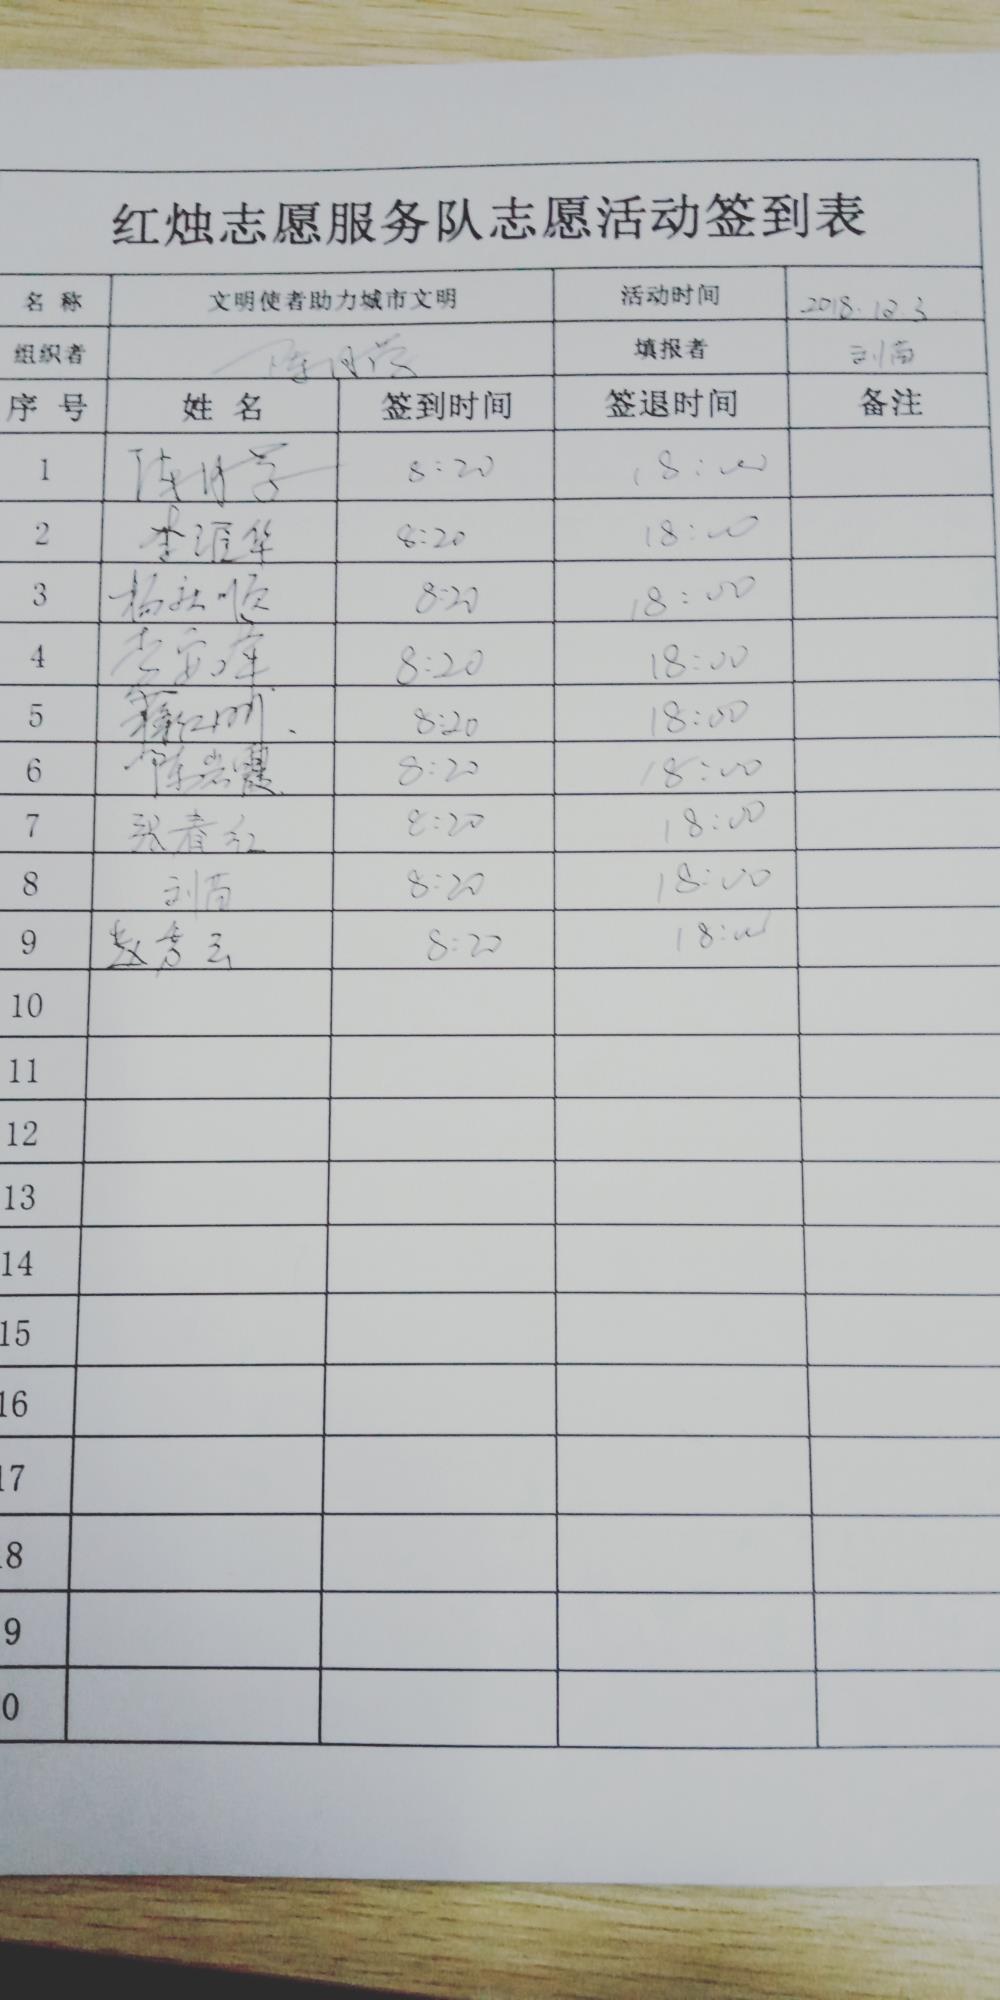 红烛志愿服务队志愿活动签到表
名 称 文明使者助力城市文明 活动时间 2018.12.3
组织者 填报者
序 号 姓 名 签到时间 签退时间 备注
1 8:20 18:00
2 8:20 18:00
3 8:20 18:00
4 8:20 18:00
5 8:20 18:00
6 8:20 18:00
7 张春红 8:20 18:00
8 8:20 18:00
9 8:20 18:00
10
11
12
13
14
15
16
17
8
9
0